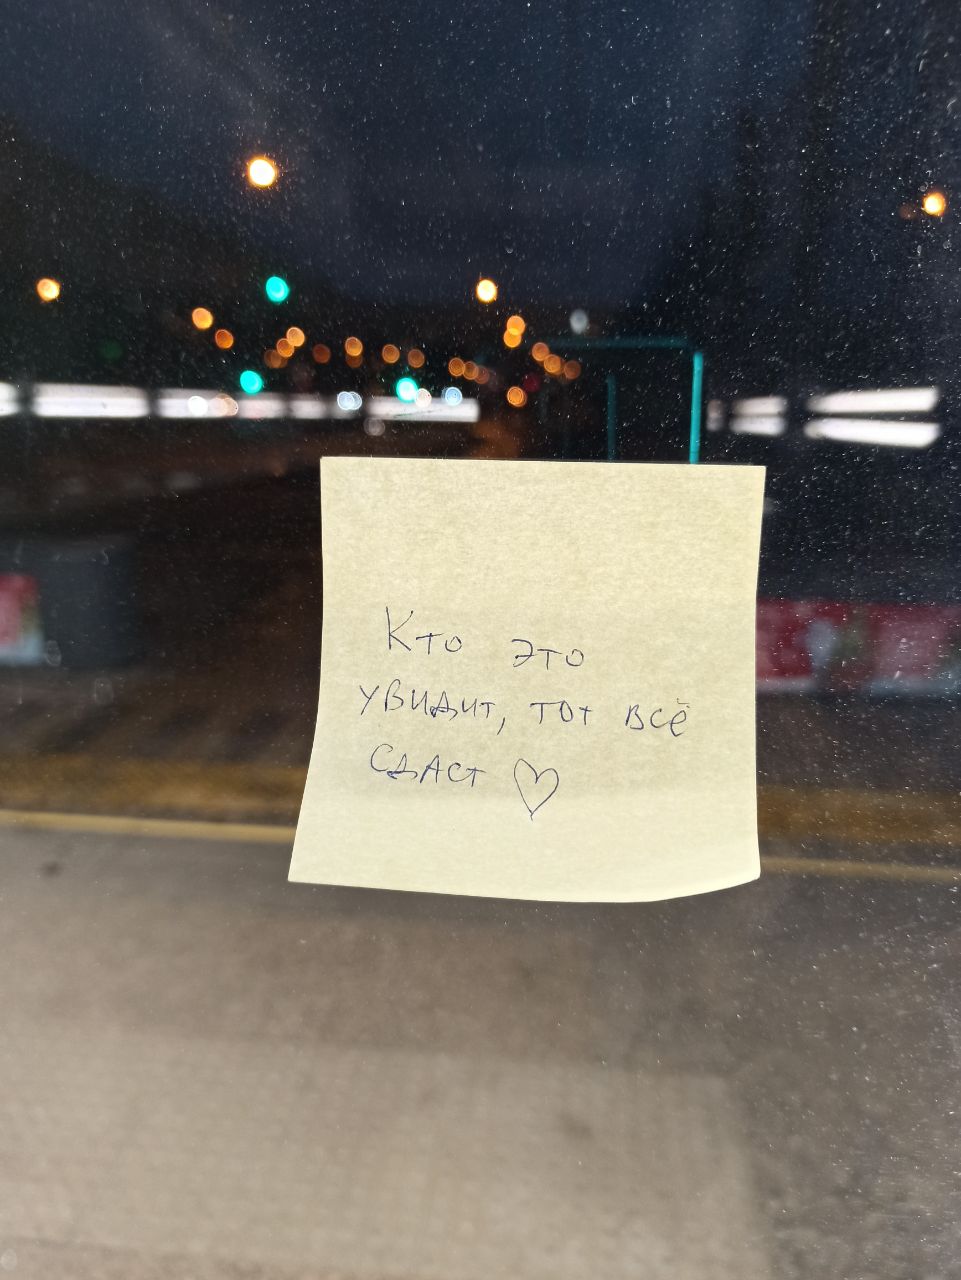 Кто это
увидит, тот всё
сдаст ♡